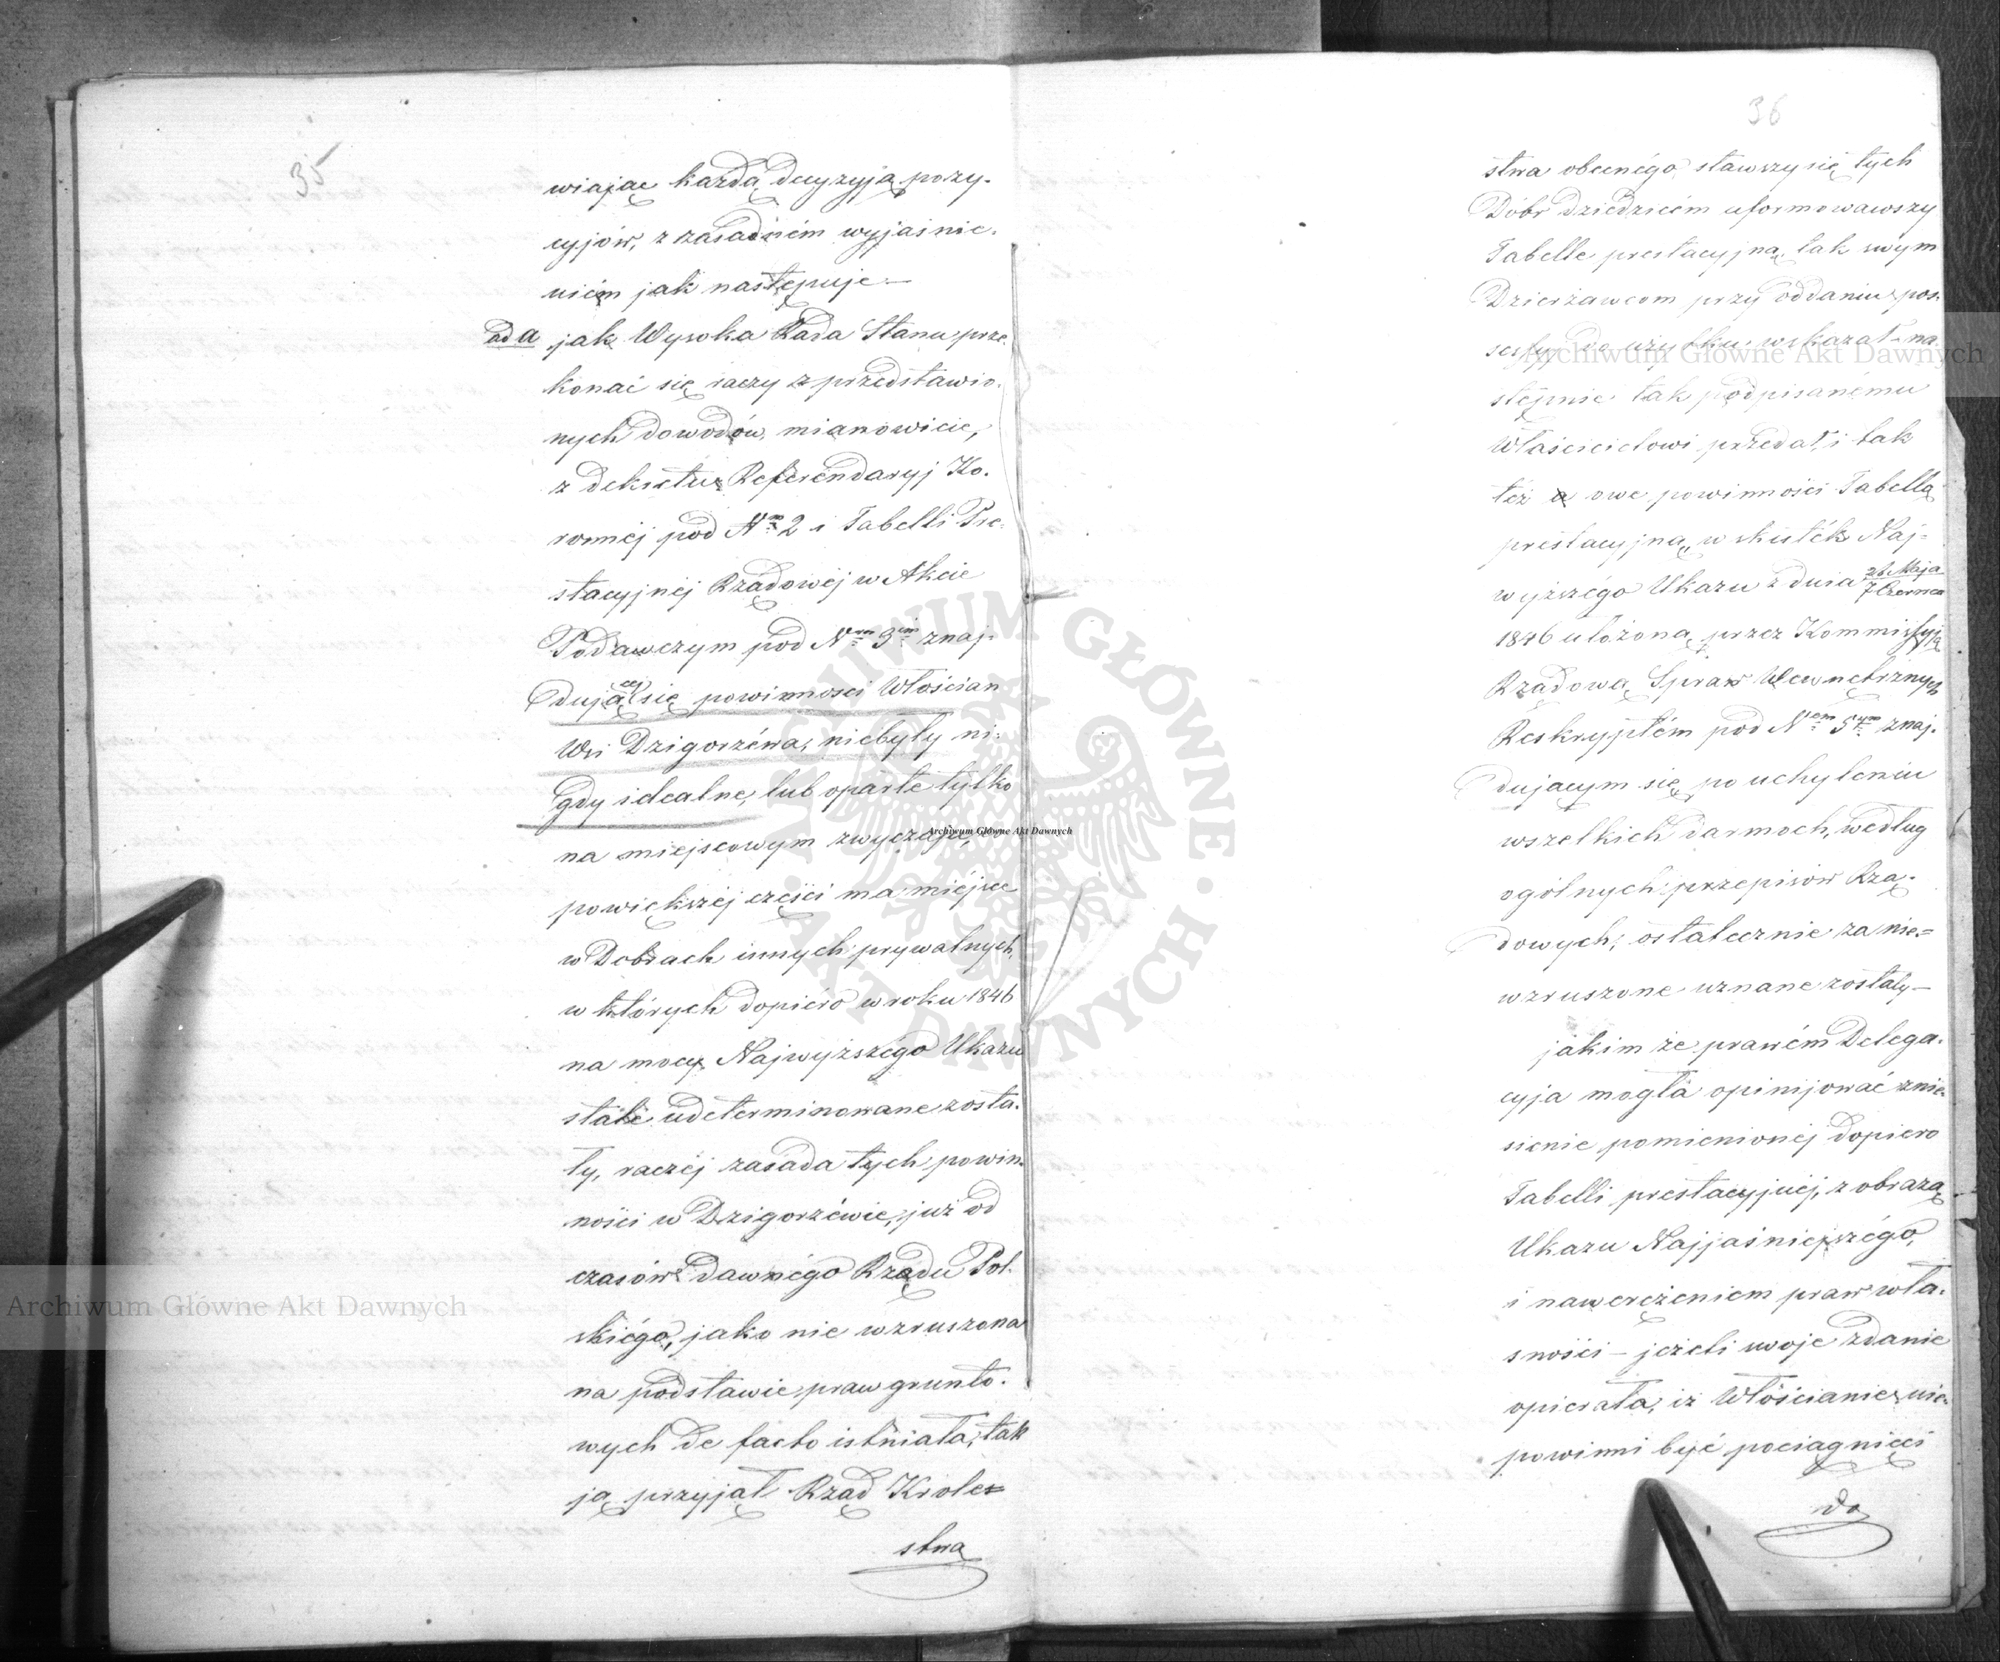 35
wiając każdą decyzyją pozy-
cyjów, z zasadném wyjaśnie-
niém jak następuje —
ad a jak Wysoka Rada Stanu prze-
konać się raczy z przedstawio-
nych dowodów, mianowicie,
z Dekretu Referéndaryj Ko-
ronnéj pod Nrem 2 i Tabelli Pre-
stacyjnéj Rządowéj w Akcie
Podawczym pod Nrem 3im znaj-
dującéj się powinności Włościan
Wsi Dzigorzéwa, niebyły ni-
gdy idealne, lub oparte tylko
na miejscowym zwyczaju,
powiększéj części ma miéjsce
w Dobrach innych prywatnych,
w których dopiéro w roku 1846
na mocy Najwyższégo Ukazu
stale udeterminowane zosta-
ły, raczéj zasada tych powin-
ności w Dzigorzéwie, już od
czasów dawnégo Rządu Pol-
skiégo, jako nie wzruszona
na podstawie praw grunto-
wych de facto istniała, tak
ją przyjął Rząd Króle=
stwa
36
stwa obecnégo, stawszy się tych
Dóbr dziedzicém uformowawszy
Tabelle prestacyjną, tak swym
Dzierżawcom przy oddaniu pos-
sessyj do użytku wskazał na-
stępnie tak podpisanému
Właścicielowi przedał, i tak
téż owe powinności Tabellą
prestacyjną, w skuték Naj=
wyższégo Ukazu z dnia 26 Maja
7 Czerwca
1846 ułożoną przez Kommissyją
Rządową Spraw Wewnętrznych
Reskryptém pod Nrem 5tym znaj-
dującym się po uchyleniu
wszelkich darmoch, według
ogólnych przepisów Rzą-
dowych, ostatecznie za nie=
wzruszone uznane zostały —
jakim że prawém Delega-
cyja mogła opinijować znie-
sienie pomienionéj dopiero
Tabelli prestacyjnéj, z obrazą
Ukazu Najjaśniejszégo,
i nawerężeniem praw wła-
sności — jeżeli swoje zdanie
opierała, iż Włościanie nie-
powinni być pociągnięci
do
Archiwum Główne Akt Dawnych
Archiwum Główne Akt Dawnych
Archiwum Główne Akt Dawnych
ARCHIWUM GŁÓWNE · AKT DAWNYCH ·